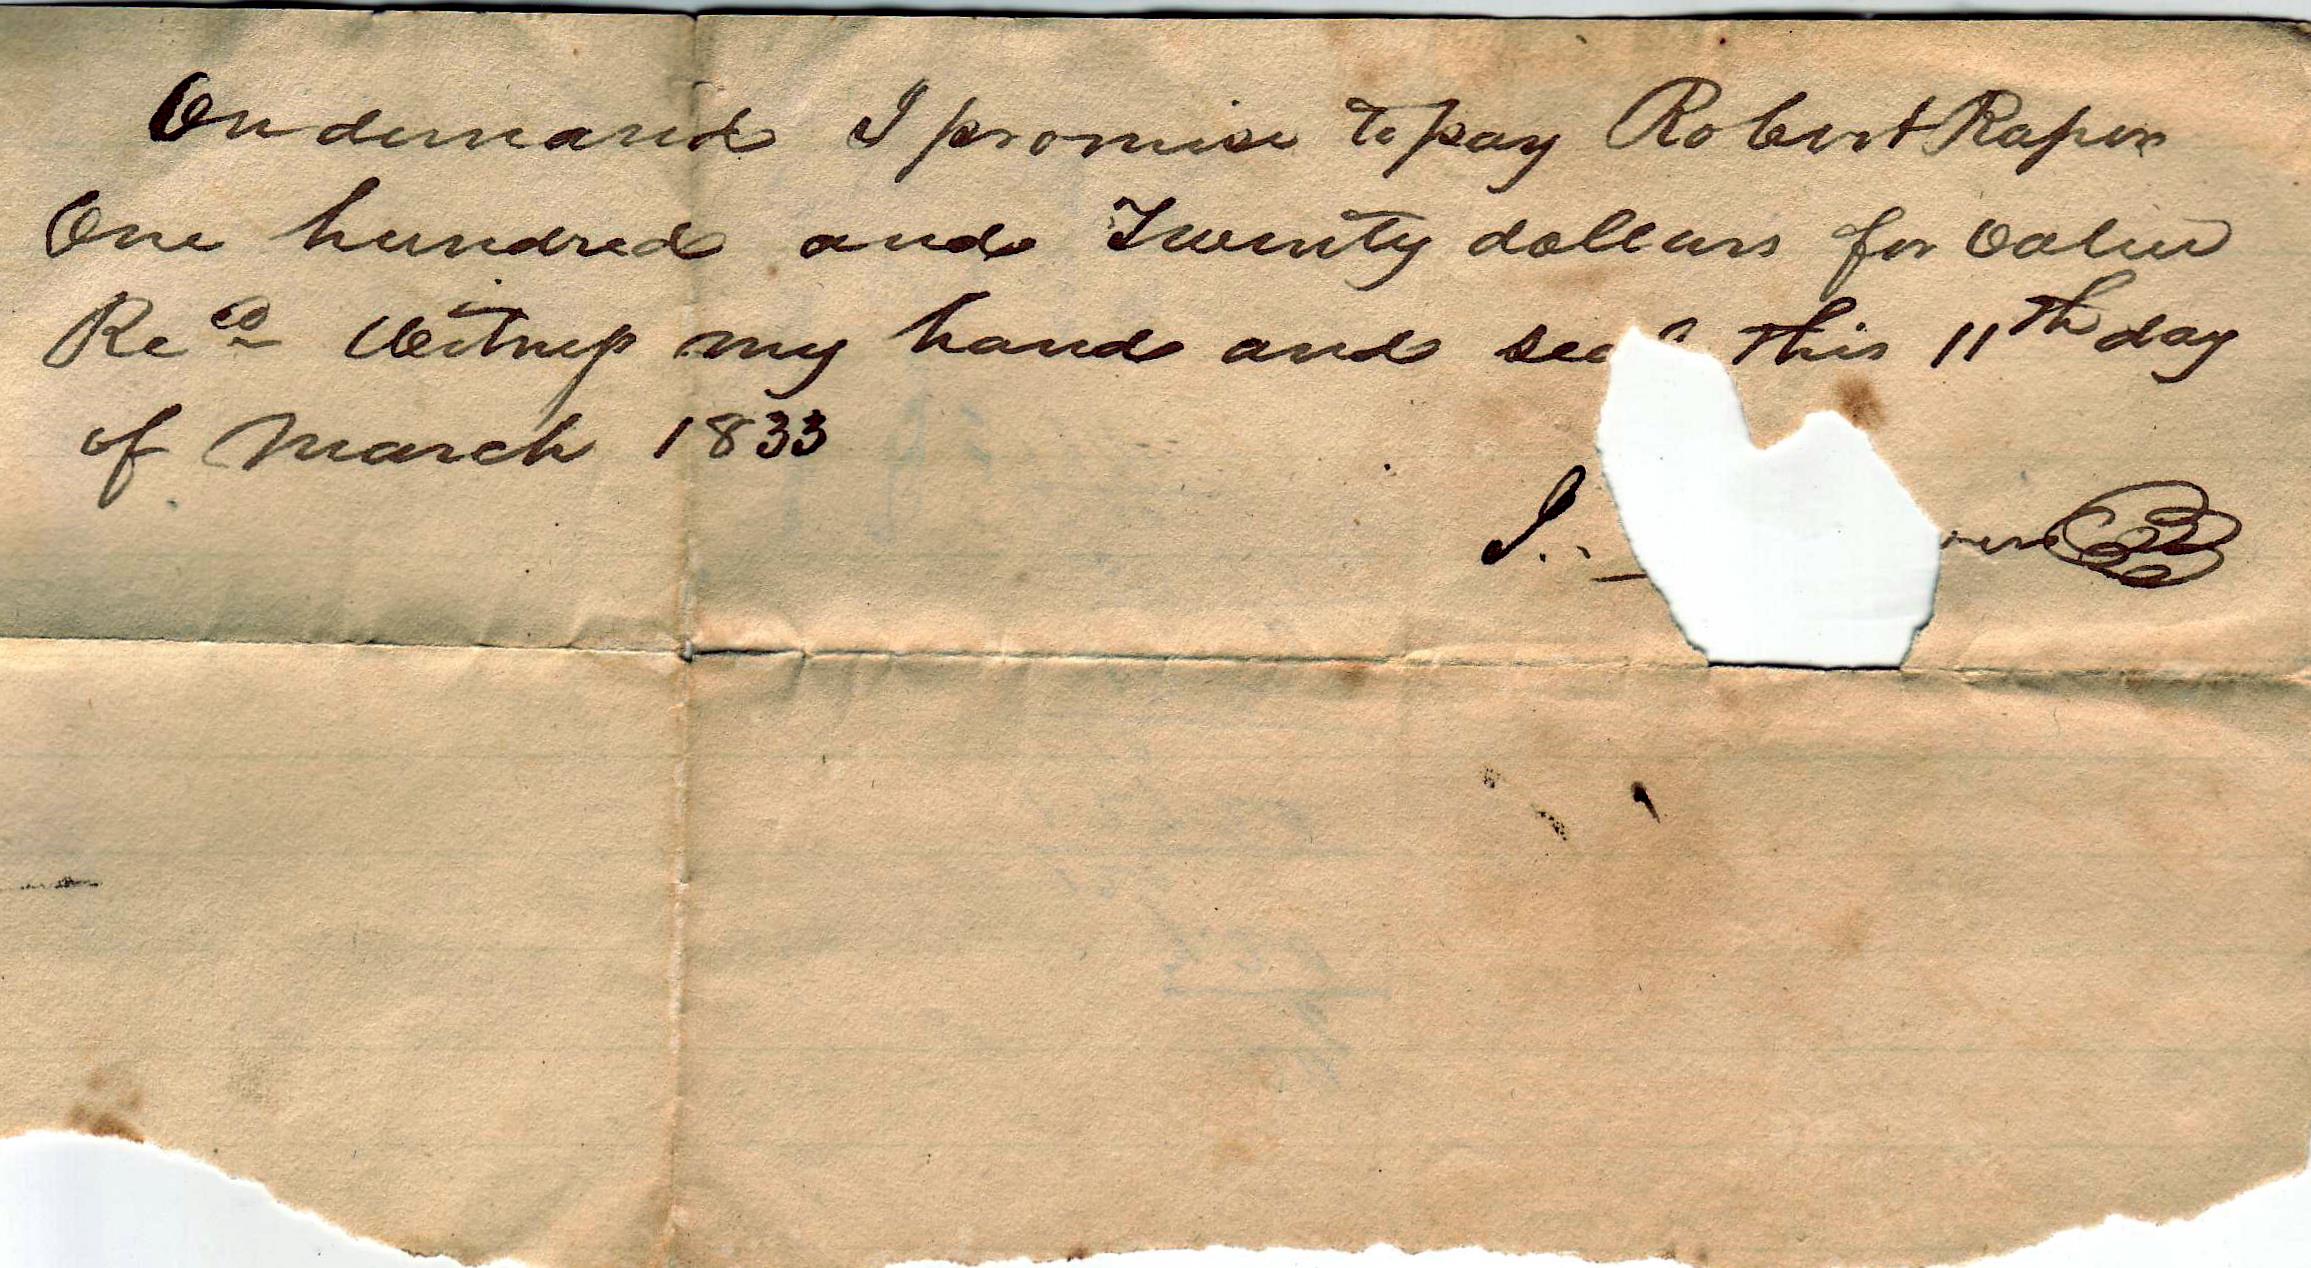 On demand I promise to pay Robert Raper
One hundred and Twenty dollars for value
Recd Witness my hand and seal this 11th day
of March 1833
J.